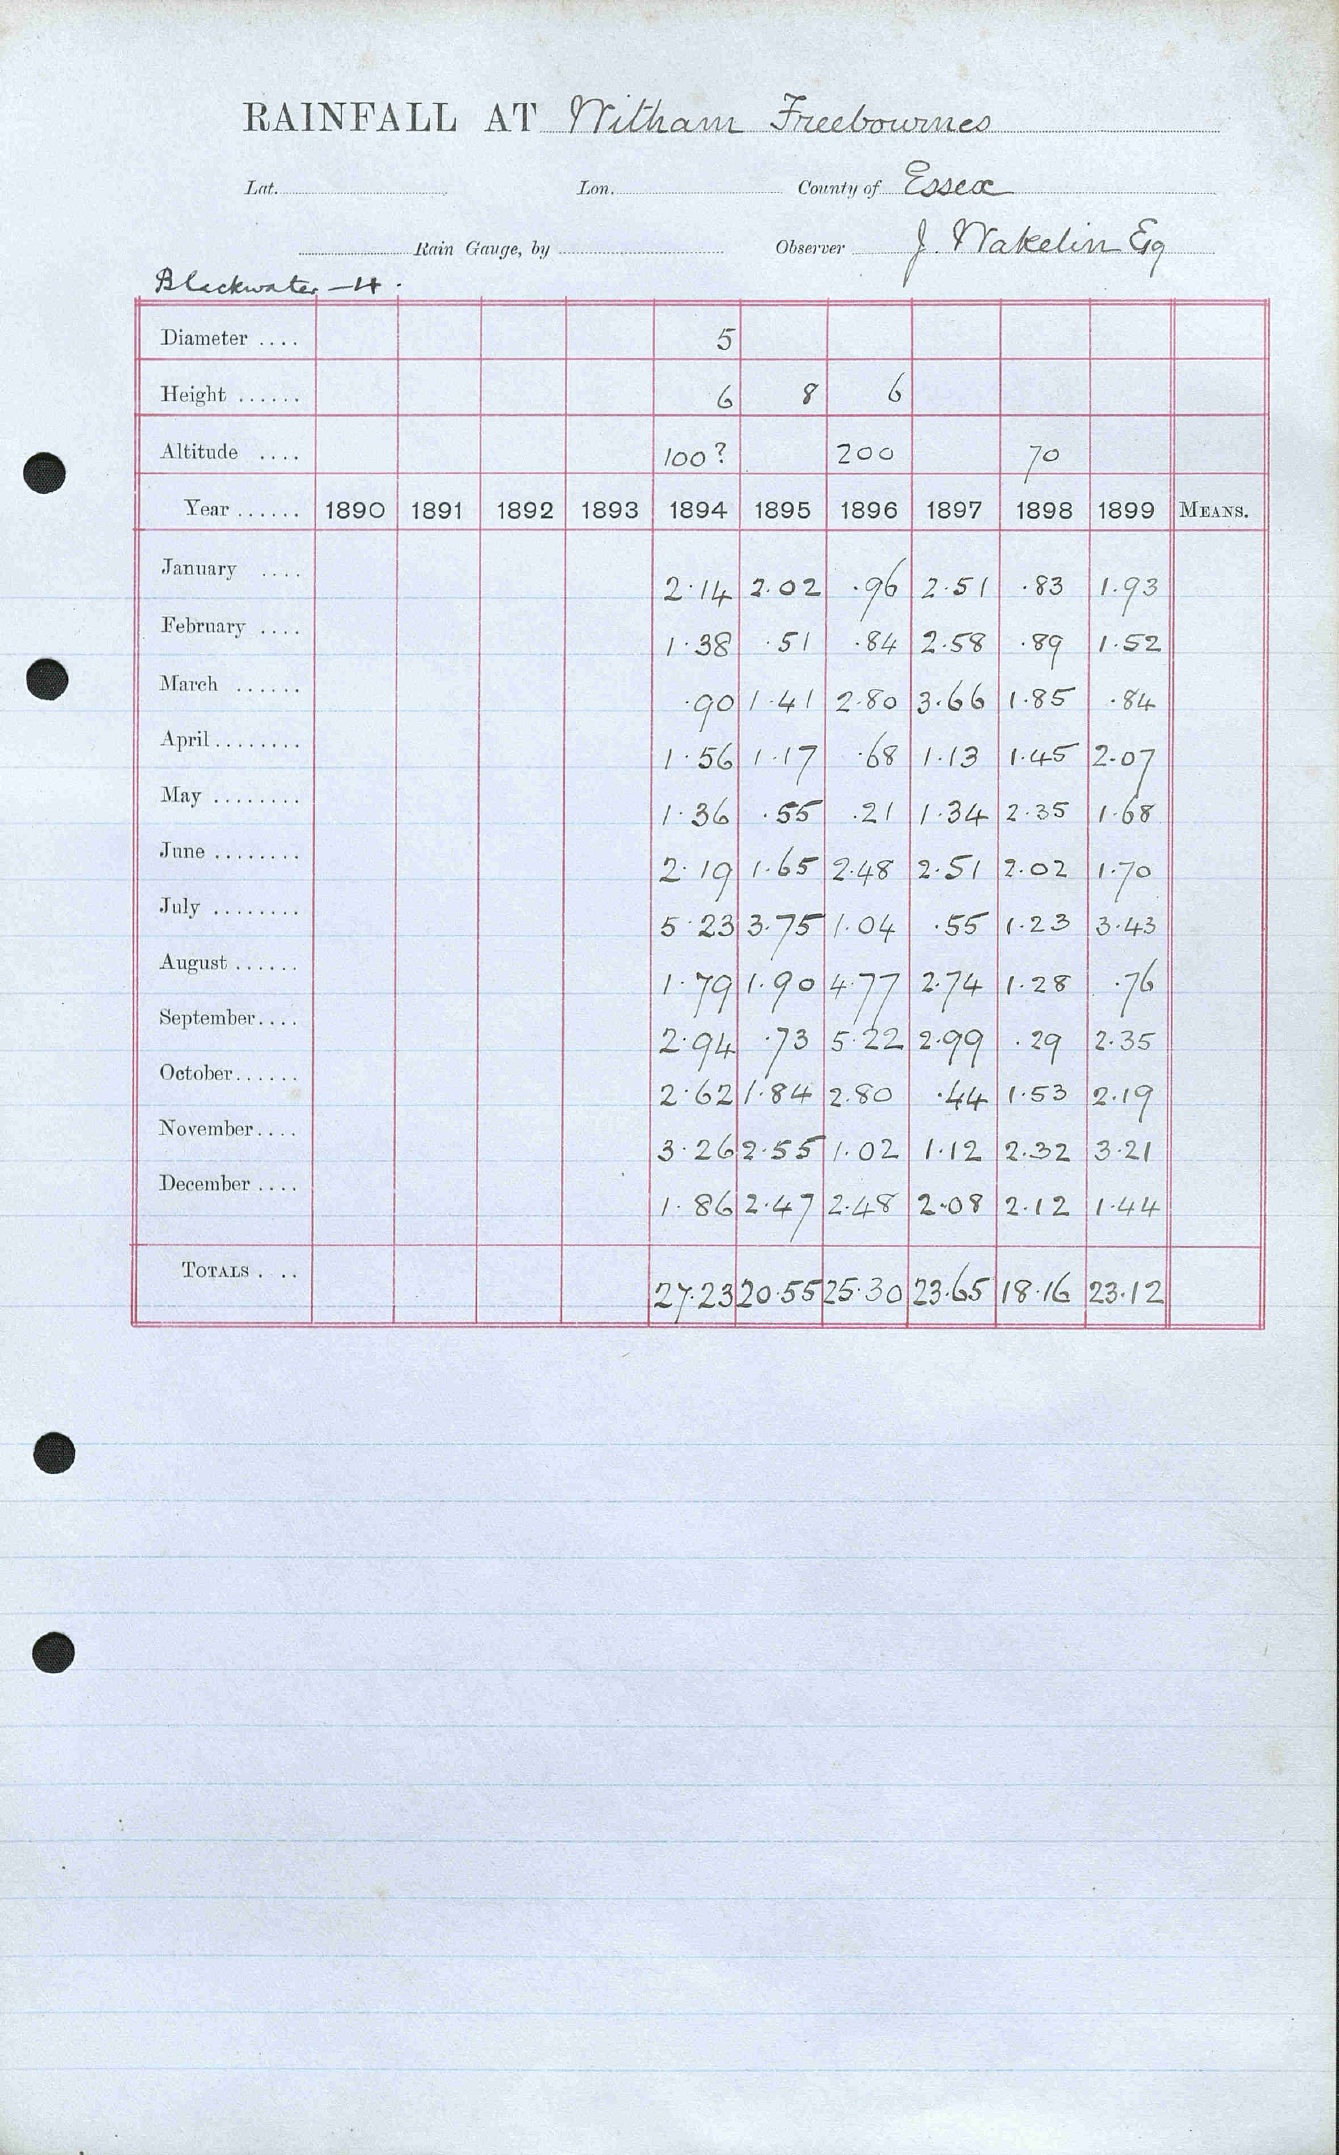 RAINFALL AT Witham Freebournes
Lat. Lon. County of Essex
Rain Gauge, by Observer J. Wakelin Esq
Blackwater - H.
Diameter .... 5
Height ...... 6 8 6
Altitude .... 100? 200 70
Year ...... 1890 1891 1892 1893 1894 1895 1896 1897 1898 1899 MEANS.
January .... 2.14 2.02 .96 2.51 .83 1.93
February .... 1.38 .51 .84 2.58 .89 1.52
March ...... .90 1.41 2.80 3.66 1.85 .84
April........ 1.56 1.17 .68 1.13 1.45 2.07
May ........ 1.36 .55 .21 1.34 2.35 1.68
June ........ 2.19 1.65 2.48 2.51 2.02 1.70
July ........ 5.23 3.75 1.04 .55 1.23 3.43
August ...... 1.79 1.90 4.77 2.74 1.28 .76
September.... 2.94 .73 5.22 2.99 .29 2.35
October...... 2.62 1.84 2.80 .44 1.53 2.19
November.... 3.26 2.55 1.02 1.12 2.32 3.21
December .... 1.86 2.47 2.48 2.08 2.12 1.44
TOTALS . .. 27.23 20.55 25.30 23.65 18.16 23.12